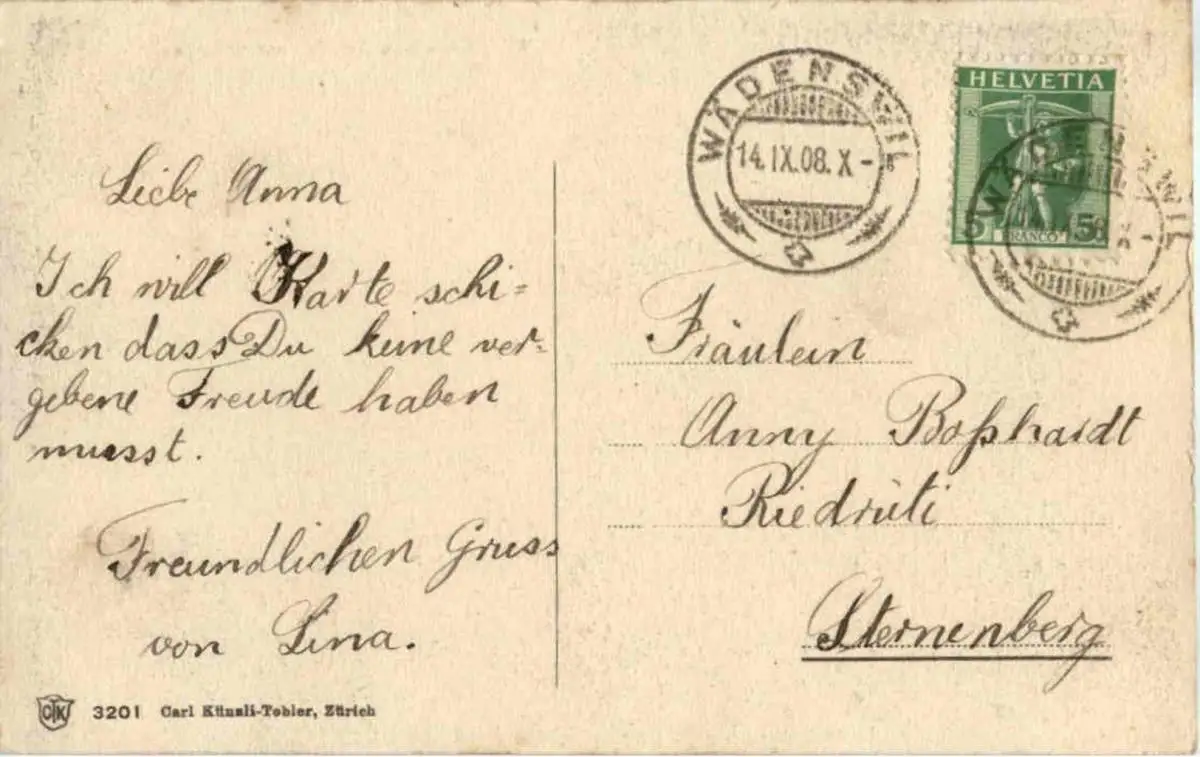 Liebe Anna
Ich will Karte schi=
cken dass Du keine ver-
gebene Freude haben
musst.
Freundlichen Gruss
von Lina.
CTK 3201 Carl Künzli-Tobler, Zürich
WÄDENSWIL
14.IX.08.X-
HELVETIA
5 FRANCO 5
WÄDENSWIL
Fräulein
Anny Boßhardt
Riedrüti
Sternenberg